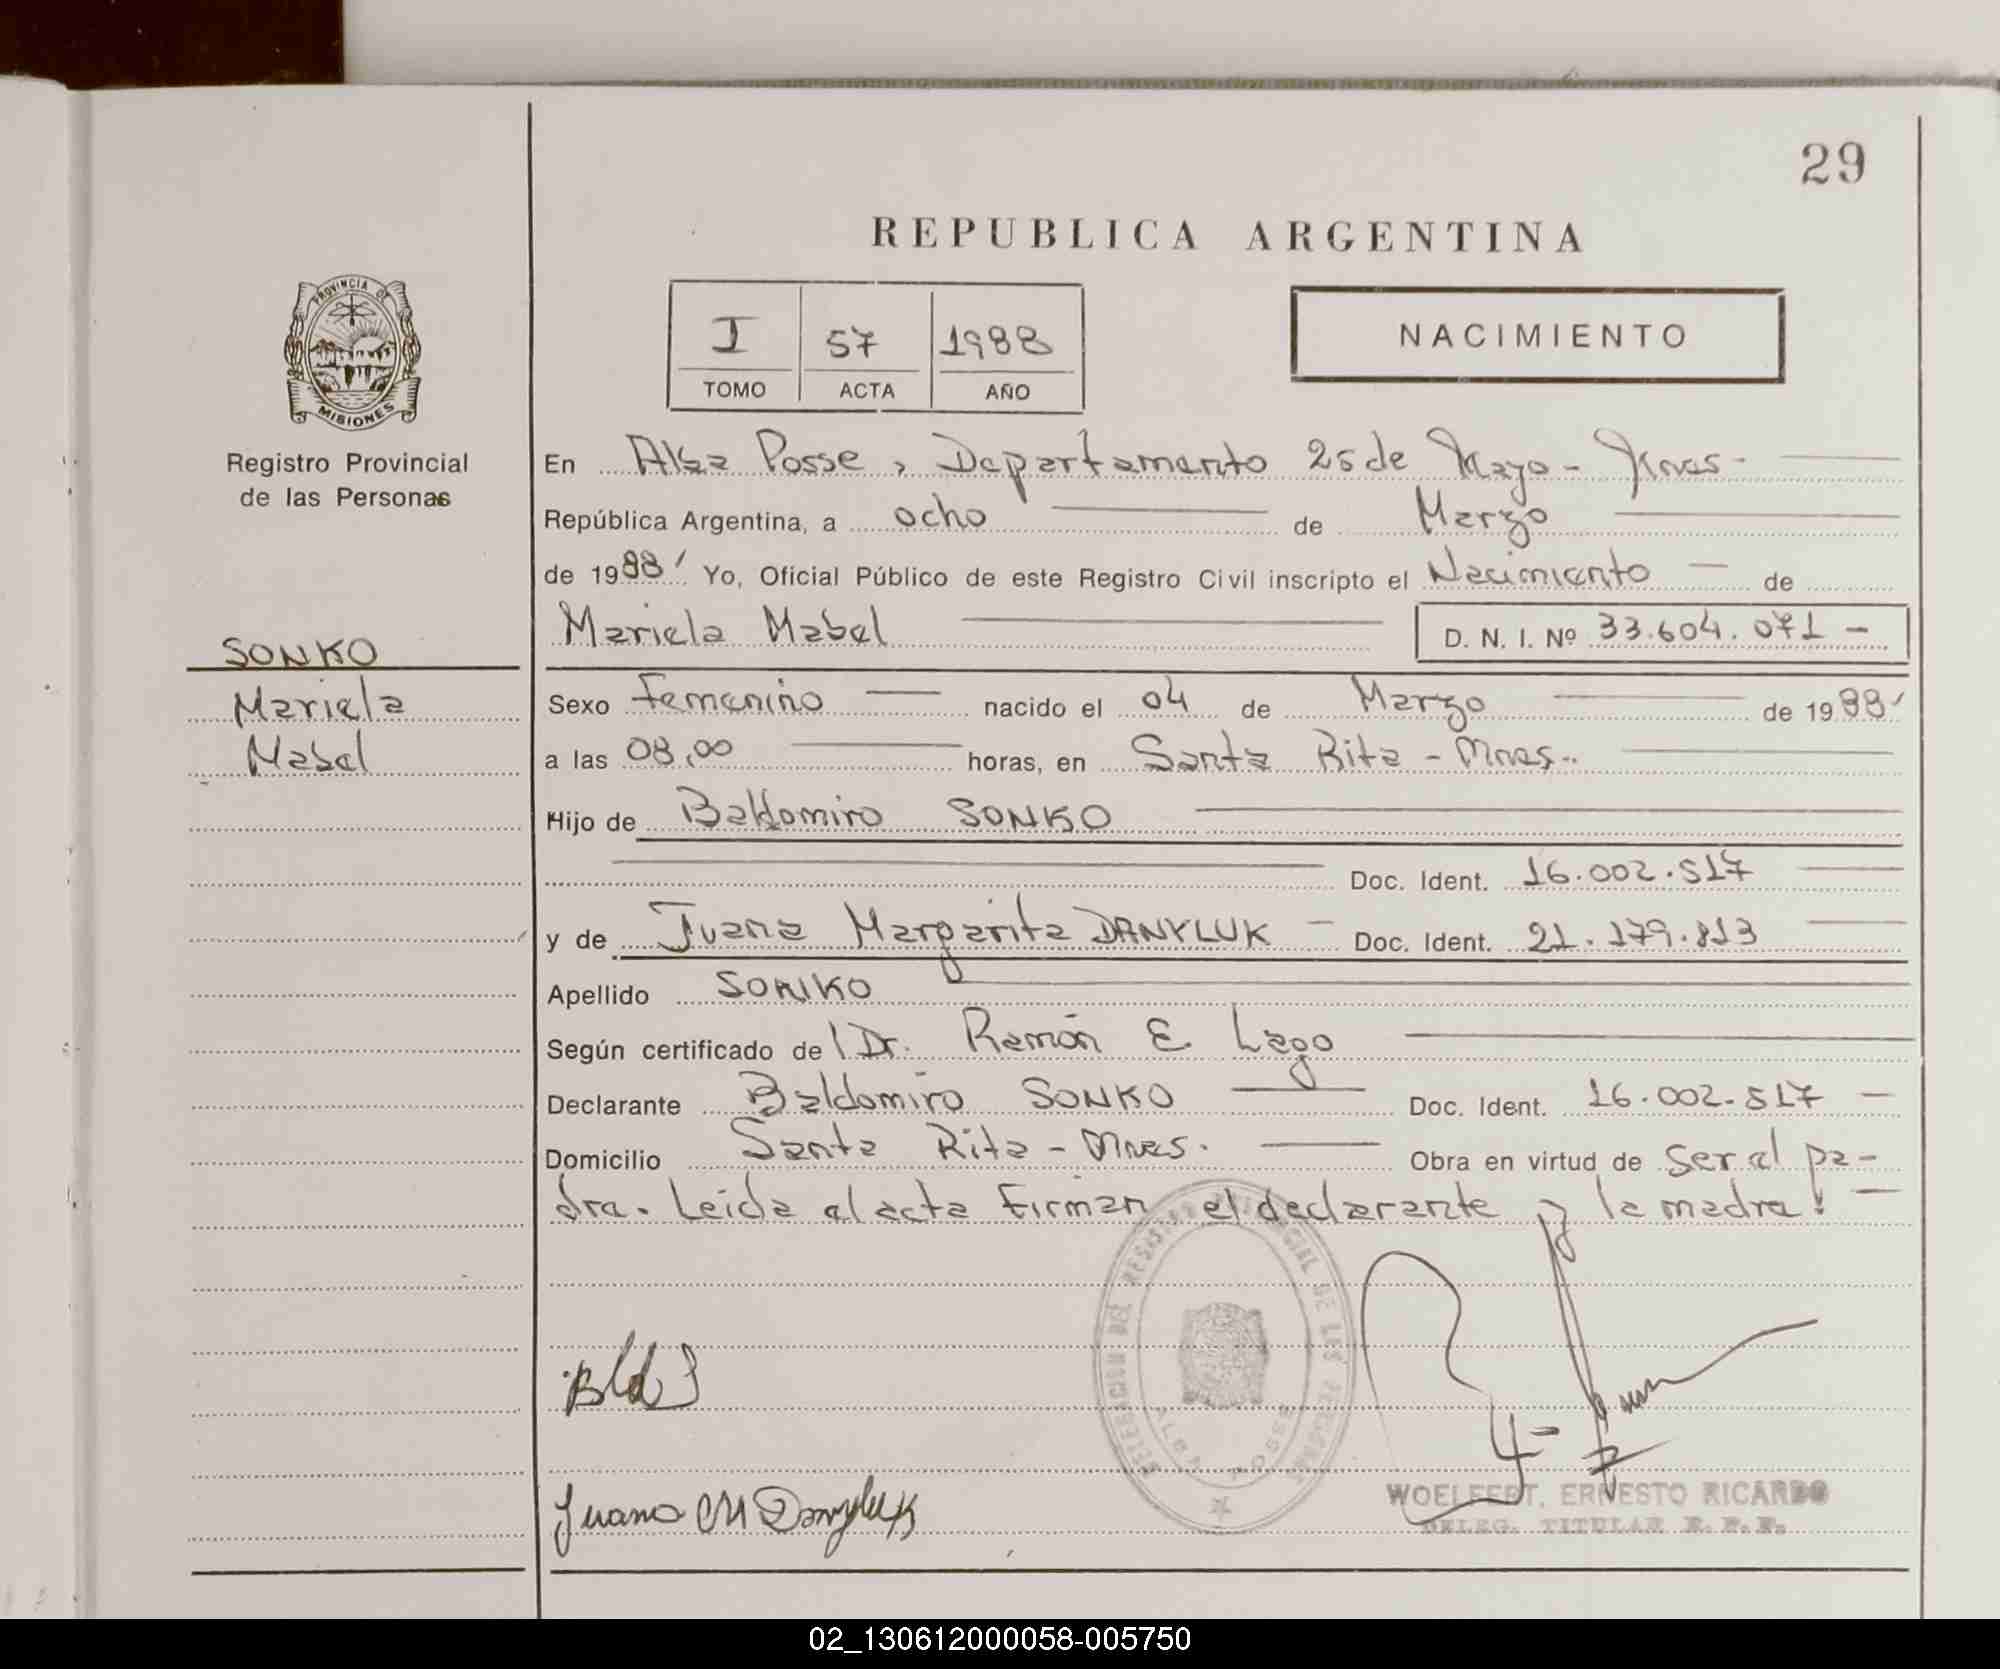 29
REPUBLICA ARGENTINA
PROVINCIA DE
MISIONES
Registro Provincial
de las Personas
I 57 1988
TOMO ACTA AÑO
NACIMIENTO
En Alba Posse, Departamento 25 de Mayo - Mnes -
República Argentina, a ocho de Marzo
de 1988 Yo, Oficial Público de este Registro Civil inscripto el Nacimiento de
Mariela Mabel D. N. I. Nº 33.604.071 -
SONKO
Mariela
Mabel
Sexo Femenino nacido el 04 de Marzo de 1988
a las 08,00 horas, en Santa Rita - Mnes.
Hijo de Baldomiro SONKO
Doc. Ident. 16.002.517
y de Juana Margarita DANYLUK Doc. Ident. 21.179.813
Apellido SONKO
Según certificado de Dr. Ramón E. Lago
Declarante Baldomiro SONKO Doc. Ident. 16.002.517
Domicilio Santa Rita - Mnes. Obra en virtud de ser el pa-
dre. Leida el acta Firman el declarante y la madre.
DELEGACION DEL REGISTRO PROVINCIAL DE LAS PERSONAS
ALBA POSSE
Juana M Danyluk
WOELFERT, ERNESTO RICARDO
DELEG. TITULAR R. P. P.
02_130612000058-005750